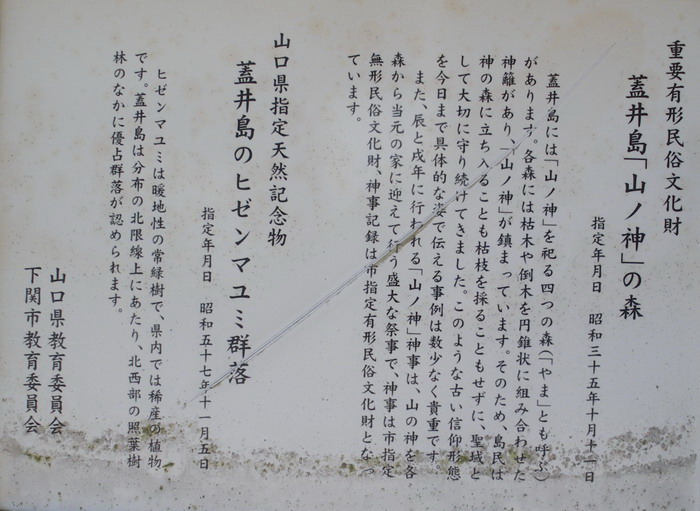 重要有形民俗文化財
蓋井島「山ノ神」の森
指定年月日 昭和三十五年十月十二日
蓋井島には「山ノ神」を祀る四つの森(「やま」とも呼ぶ)
があります。各森には枯木や倒木を円錐状に組み合わせた
神籬があり、「山ノ神」が鎮まっています。そのため、島民は
神の森に立ち入ることも枯枝を採ることもせずに、聖域と
して大切に守り続けてきました。このような古い信仰形態
を今日まで具体的な姿で伝える事例は数少なく貴重です。
また、辰と戌年に行われる「山ノ神」神事は、山の神を各
森から当元の家に迎えて行う盛大な祭事で、神事は市指定
無形民俗文化財、神事記録は市指定有形民俗文化財となっ
ています。
山口県指定天然記念物
蓋井島のヒゼンマユミ群落
指定年月日 昭和五十七年十一月五日
ヒゼンマユミは暖地性の常緑樹で、県内では稀産の植物
です。蓋井島は分布の北限線上にあたり、北西部の照葉樹
林のなかに優占群落が認められます。
山口県教育委員会
下関市教育委員会